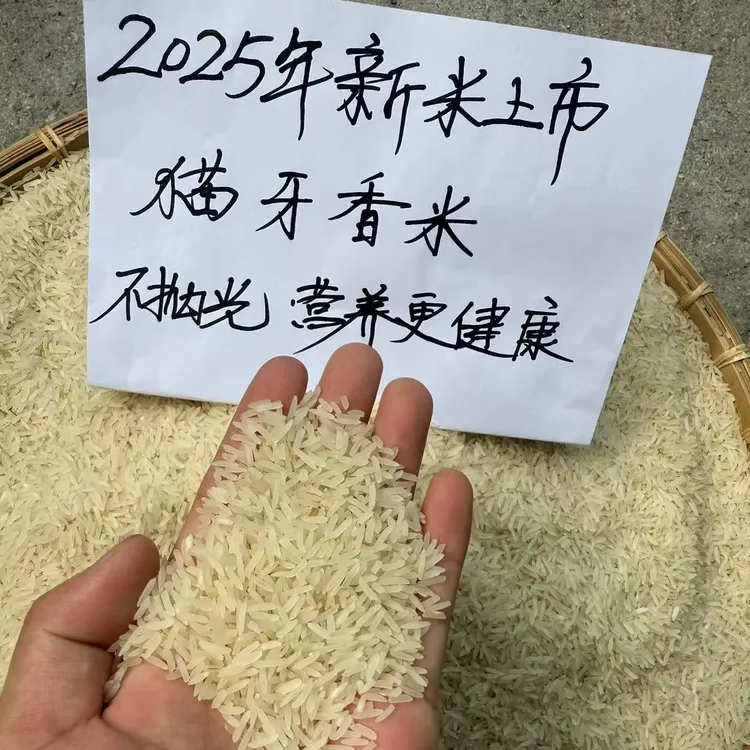 2025年新米上市
猫牙香米
不抛光 营养更健康